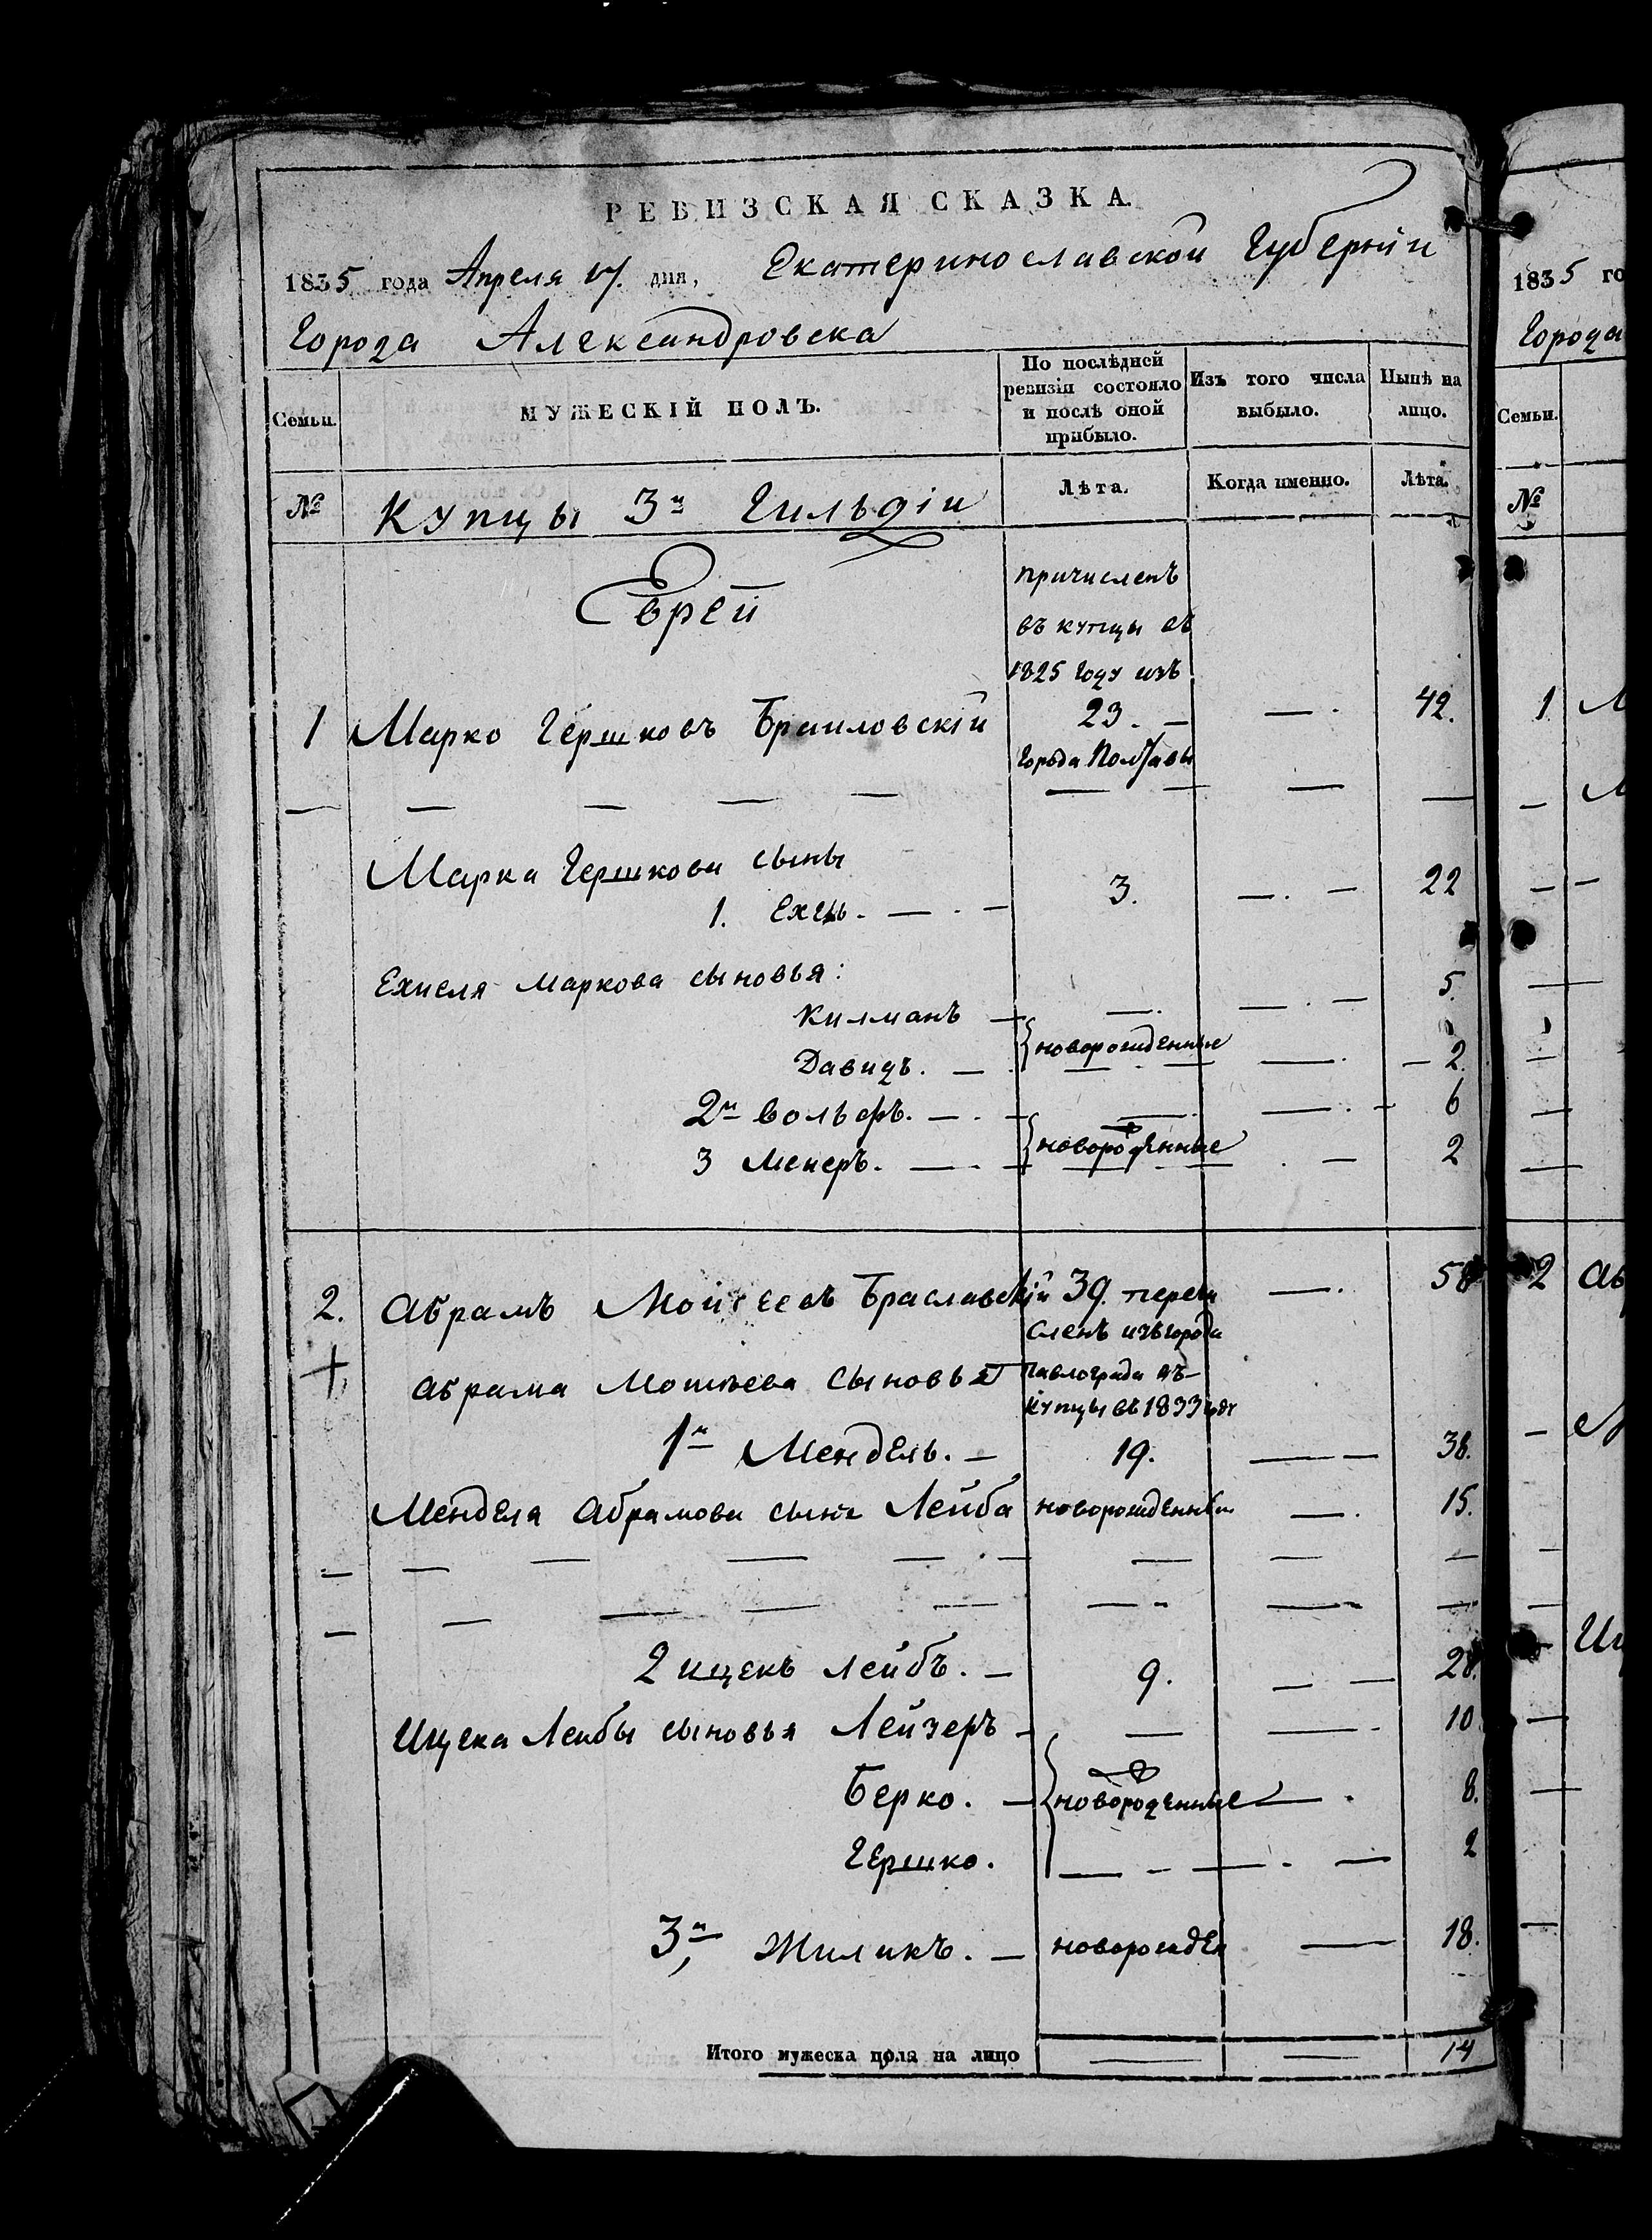 РЕВИЗСКАЯ СКАЗКА.
1835 года Апреля 17. дня, Екатеринославской Губерніи
Города Александровска
Семьи. МУЖЕСКІЙ ПОЛЪ. По послѣдней ревизіи состояло и послѣ оной прибыло. Изъ того числа выбыло. Нынѣ на лицо.
№ Купцы 3й Гильдіи Лѣта. Когда именно. Лѣта.
Еврей
причисленъ
въ купцы въ
1825 году изъ
1 Марко Гершковъ Браиловскій 23. — — . 42.
города Полтавы
Марка Гершкова сыны
1. Ехель. — . — 3. — . — 22
Ехиеля Маркова сыновья:
Килманъ — — . — . — 5.
Давидъ. — новорожденные — . — 2.
2й Вольфъ. — . — — . — . — 6
3 Меиеръ. — . — новорожденные . — 2
2. Абрамъ Моисеевъ Браславскій 39. перечи — . 58
сленъ изъ города
Абрама Мошьева сыновья Павлограда въ
купцы въ 1833 году
1й Мендель. — 19. — — 38.
Менделя Абрамова сынъ Лейба новорожденный — . 15.
2 Ицекъ Лейбъ. — 9. — — 28.
Ицека Лейбы сыновья Лейзеръ — — — . 10
Берко. — новорожденные — . 8.
Гершко. — - — . — 2
3й, Жиликъ. — новорожден — 18.
Итого мужеска пола на лицо — — 14
1835 го
Города
Семьи.
№
1 М
2 Аб